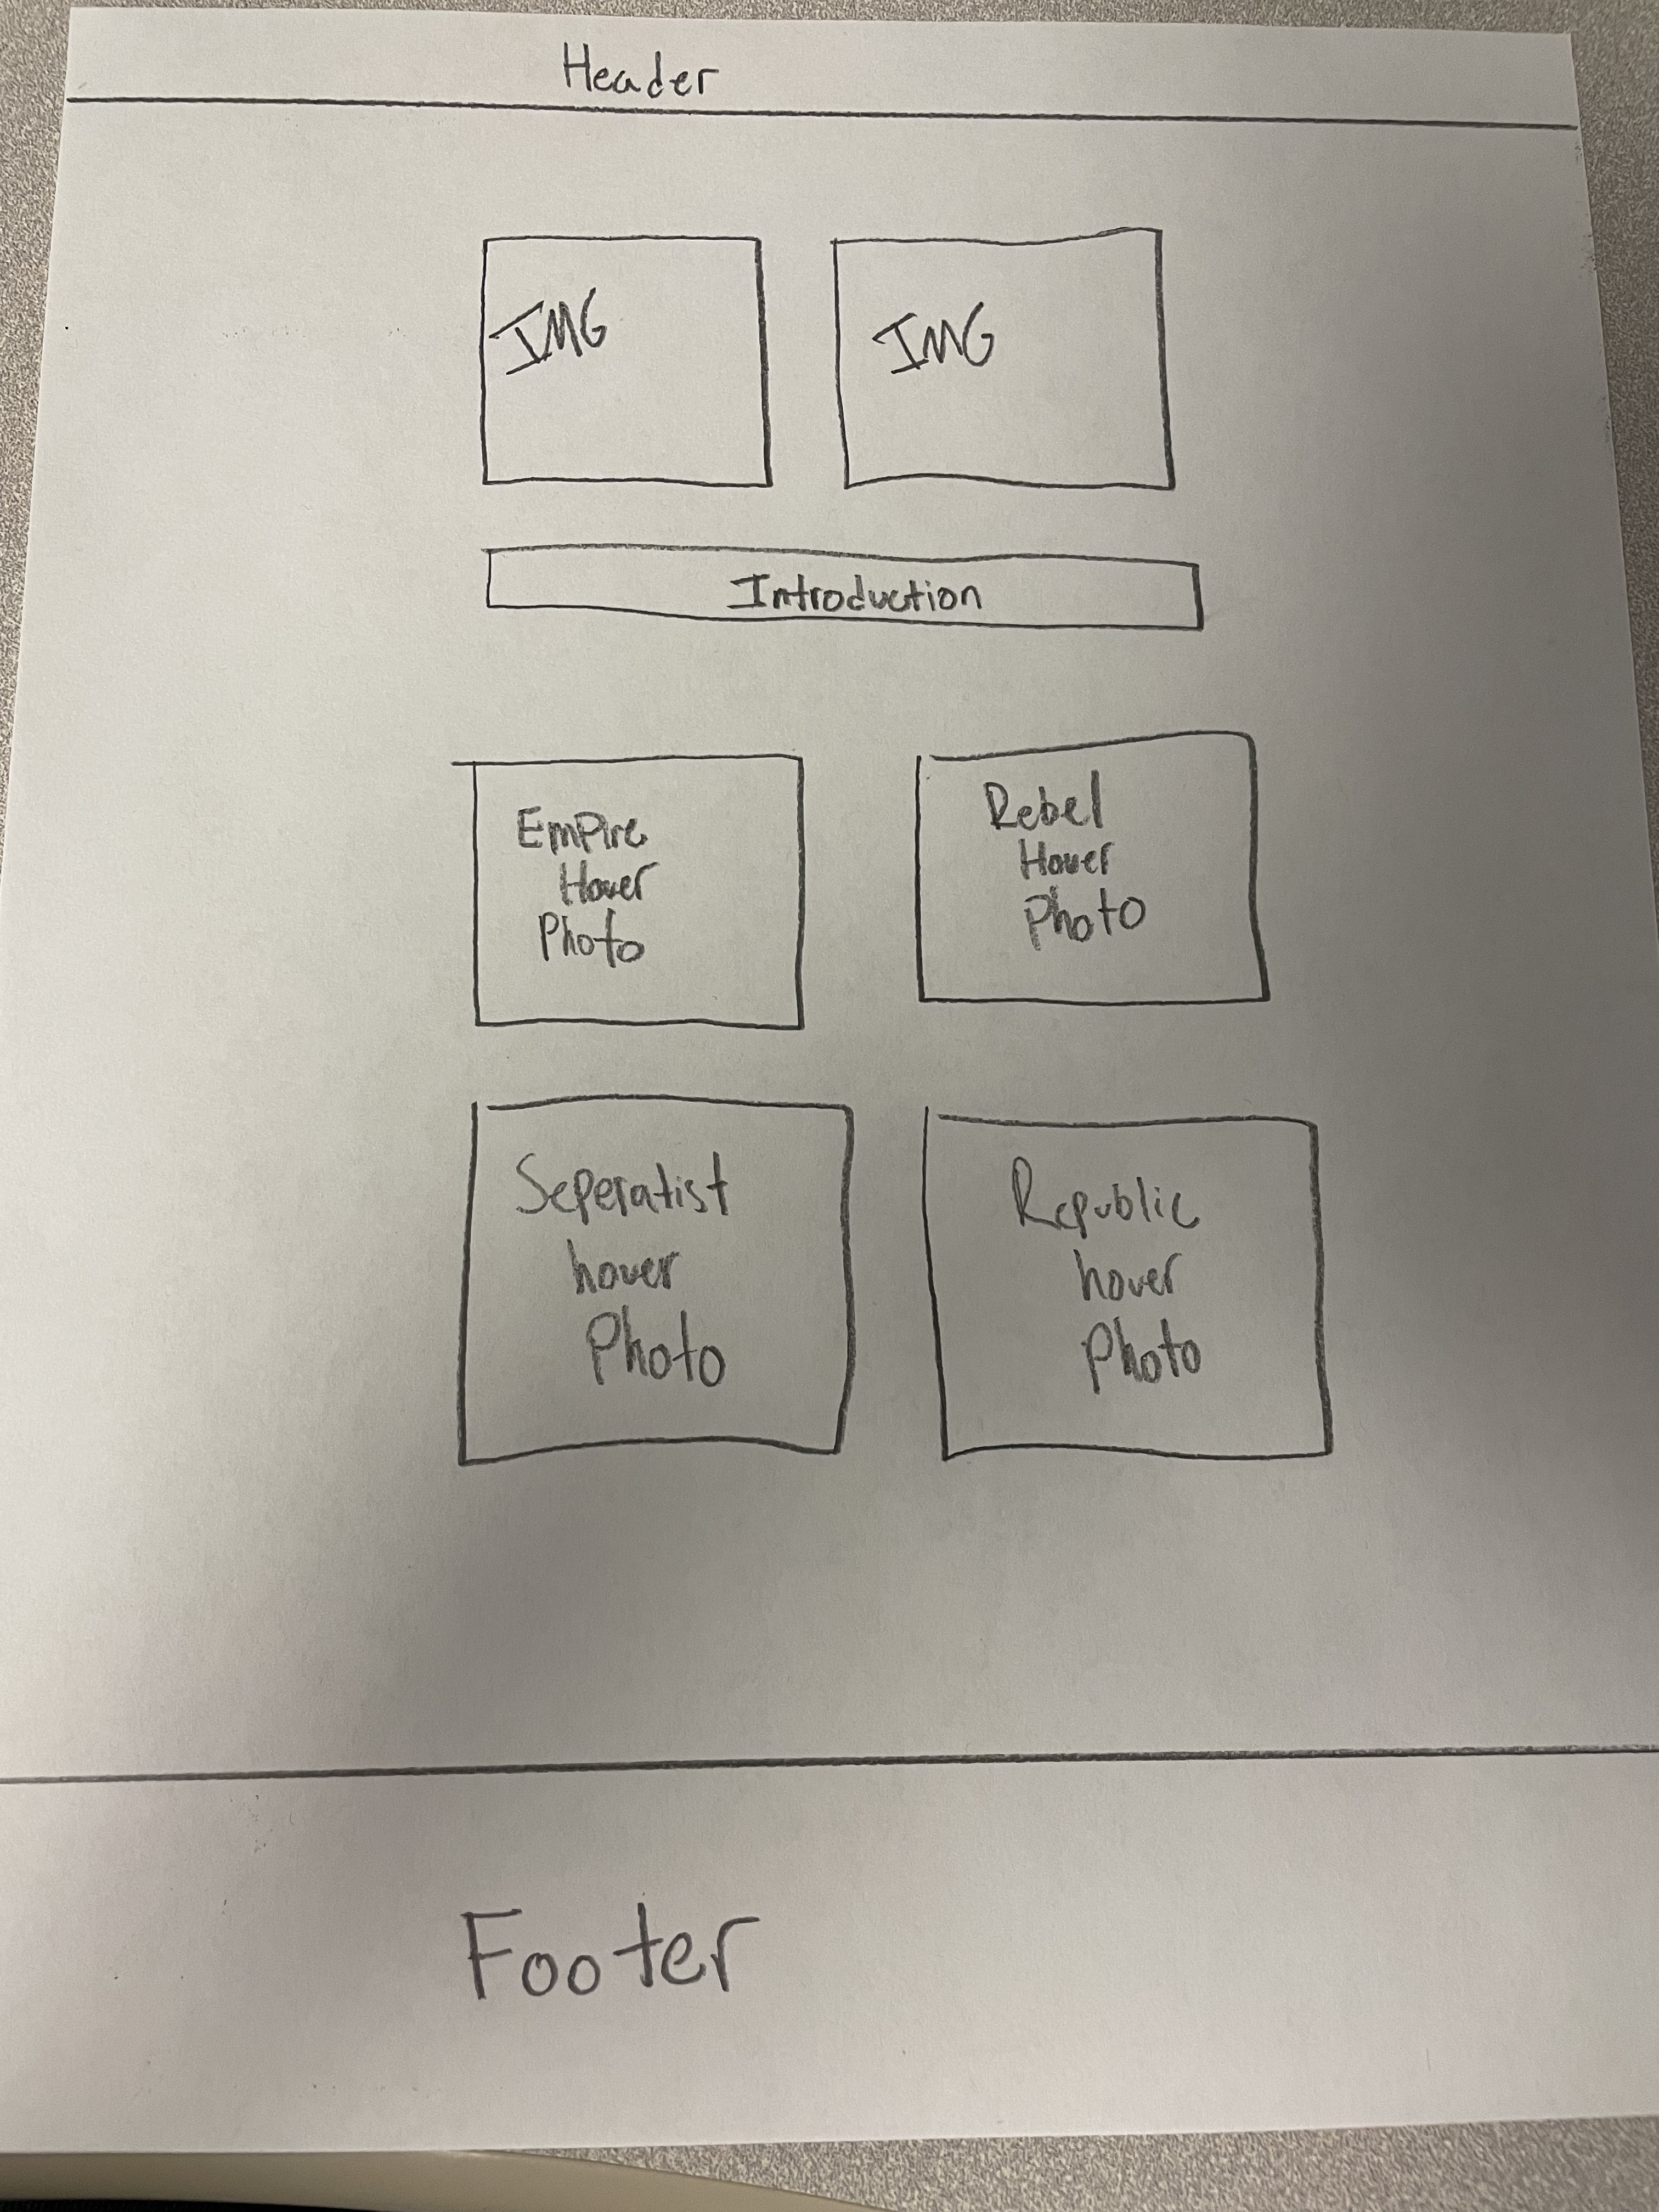 Header
IMG
IMG
Introduction
EmPire
Hover
Photo
Rebel
Hover
Photo
Seperatist
hover
Photo
Republic
hover
Photo
Footer